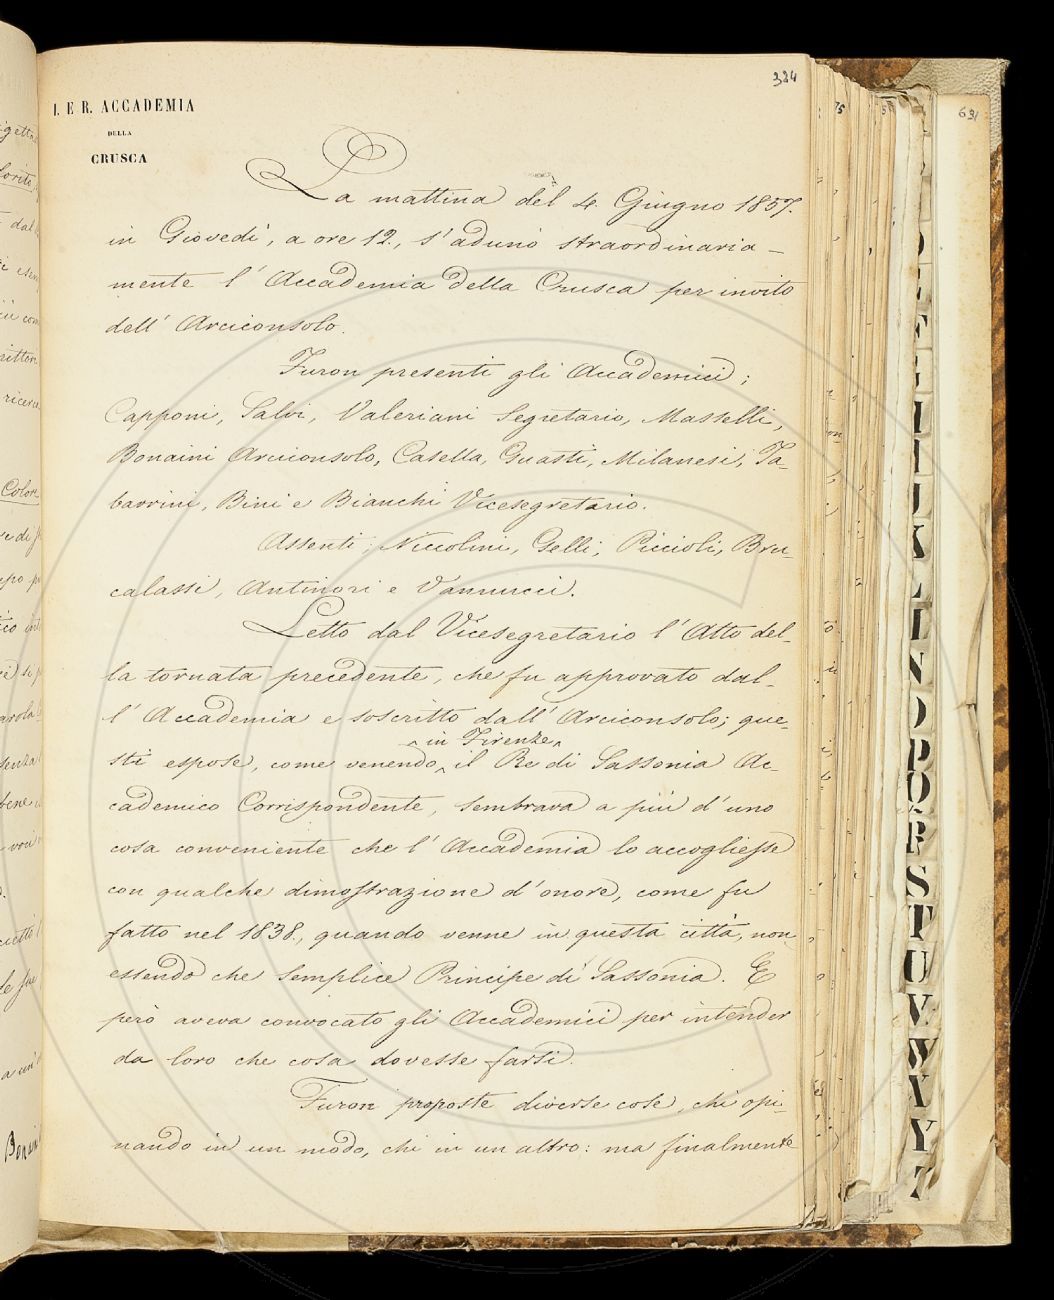 334
I. E R. ACCADEMIA
DELLA
CRUSCA
La mattina del 4. Giugno 1857.
in Giovedì, a ore 12., s'adunò straordinaria-
mente l'Accademia della Crusca per invito
dell'Arciconsolo.
Furon presenti gli Accademici;
Capponi, Salvi, Valeriani Segretario, Masselli,
Bonaini Arciconsolo, Casella, Guasti, Milanesi, Ta-
barrini, Bini e Bianchi Vicesegretario.
Assenti; Niccolini, Gelli, Piccioli, Bru-
calassi, Antinori e Vannucci.
Letto dal Vicesegretario l'Atto del-
la tornata precedente, che fu approvato dal-
l'Accademia e soscritto dall'Arciconsolo; que-
in Firenze
sti espose, come venendo il Re di Sassonia Ac-
cademico Corrispondente, sembrava a più d'uno
cosa conveniente che l'Accademia lo accogliesse
con qualche dimostrazione d'onore, come fu
fatto nel 1838., quando venne in questa città, non
essendo che semplice Principe di Sassonia. E
però aveva convocato gli Accademici per intender
da loro che cosa dovesse farsi.
Furon proposte diverse cose, chi opi-
nando in un modo, chi in un altro: ma finalmente
631
K
L
N
O
P
Q
R
S
T
U
V
W
X
Y
Z